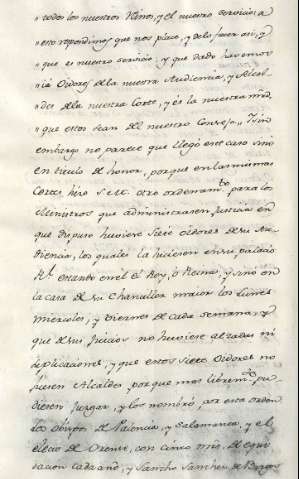 "todos los nuestros Reinos, y el nuestro servicio: a
"eso respondemos que nos place, y de lo facer asi, y
"que es nuestro servicio, y que dado havemos
"ia Oidores de la nuestra Audiencia, y Alcal-
"des de la nuestra Corte, y es la nuestra mrd,
"que estos sean del nuestro Consejo." Y sin
embargo no parece que llegó este caso sino
en titulo de honor, porque en las mismas
Cortes hizo S.M. otro ordenam.to para los
Ministros que administrasen Justicia en
que dispuso huviese siete oidores de su Au-
diencia, los quales la hiciesen en su palacio
R.l estando en el el Rey, ó Reina, y sino en
la casa de su Chanciller maior los Lunes
Miercoles, y Viernes de cada semana, y
que de sus Juicios no huviese alzadas ni
suplicaciones, y que estos siete Oidores no
fuesen Alcaldes, porque mas librem.te pu-
diesen juzgar, y los nombró, por este orden
los obispos de Palencia, y Salamanca, y el
electo de Orense, con cinco mil de
dacion cada año, y Sancho Sanchez de Burgos